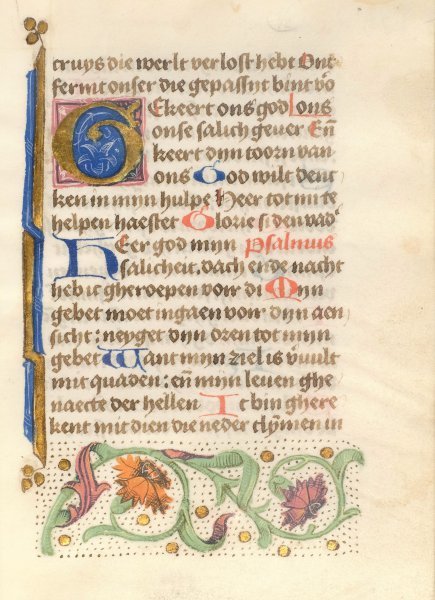 cruys die werlt verlost hebt Ont
fermt onser die gepassijt bint vo
Gekeert ons god Lons
onse salich geuer En
keert dyn toorn van
ons God wilt denc
ken in myn hulpe Heer tot mi te
helpen haestet Glorie si den vad
Heer god myn Psalmus
salicheit, dach ende nacht
heb ic gheroepen voir di Myn
gebet moet ingaen voir dyn aen
sicht: neyget dyn oren tot myn
gebet Want myn ziel is vuult
mit quaden: en myn leuen ghe
naecte der hellen It bin ghere
kent mit dien die neder clymen in